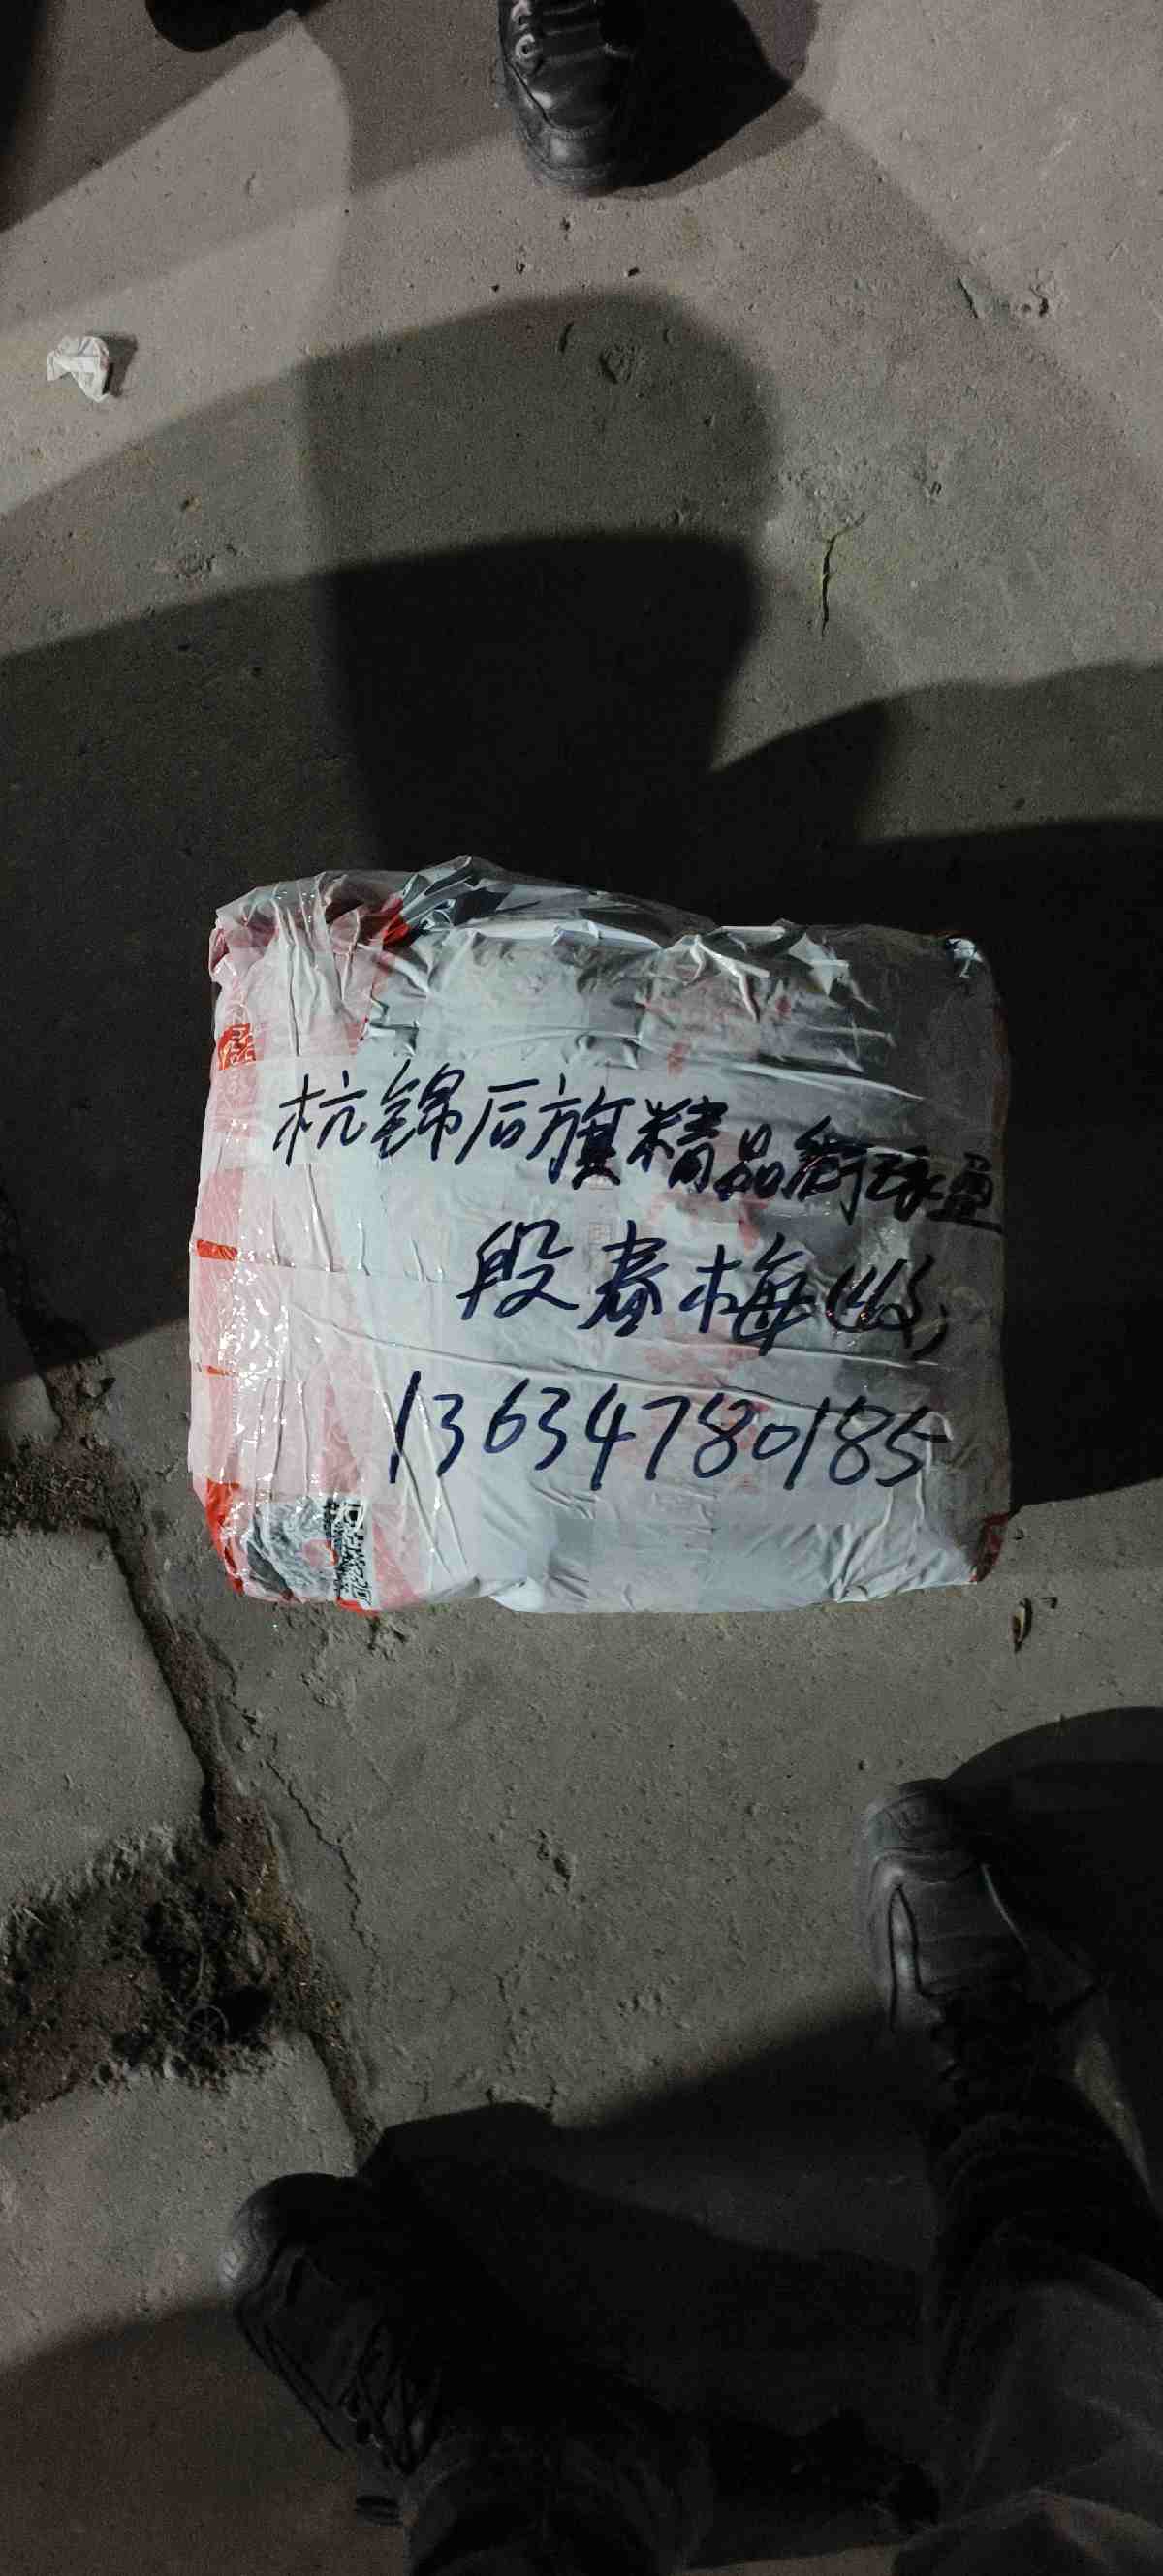 杭锦后旗精品街
段春梅(收)
13634780185